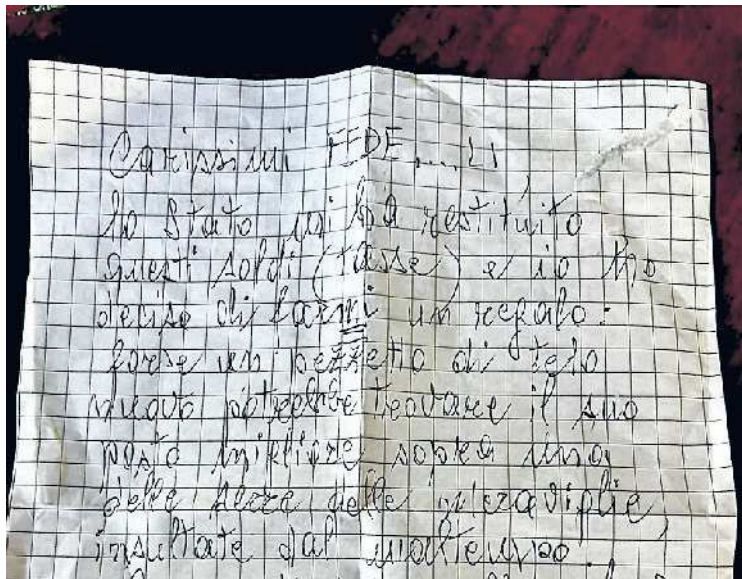 Carissimi FEDE....LI
lo Stato mi ha restituito
questi soldi (tasse) e io ho
deciso di farmi un regalo:
forse un pezzetto di telo
nuovo potrebbe trovare il suo
posto migliore sopra una
delle serre delle meraviglie,
insultate dal maltempo.